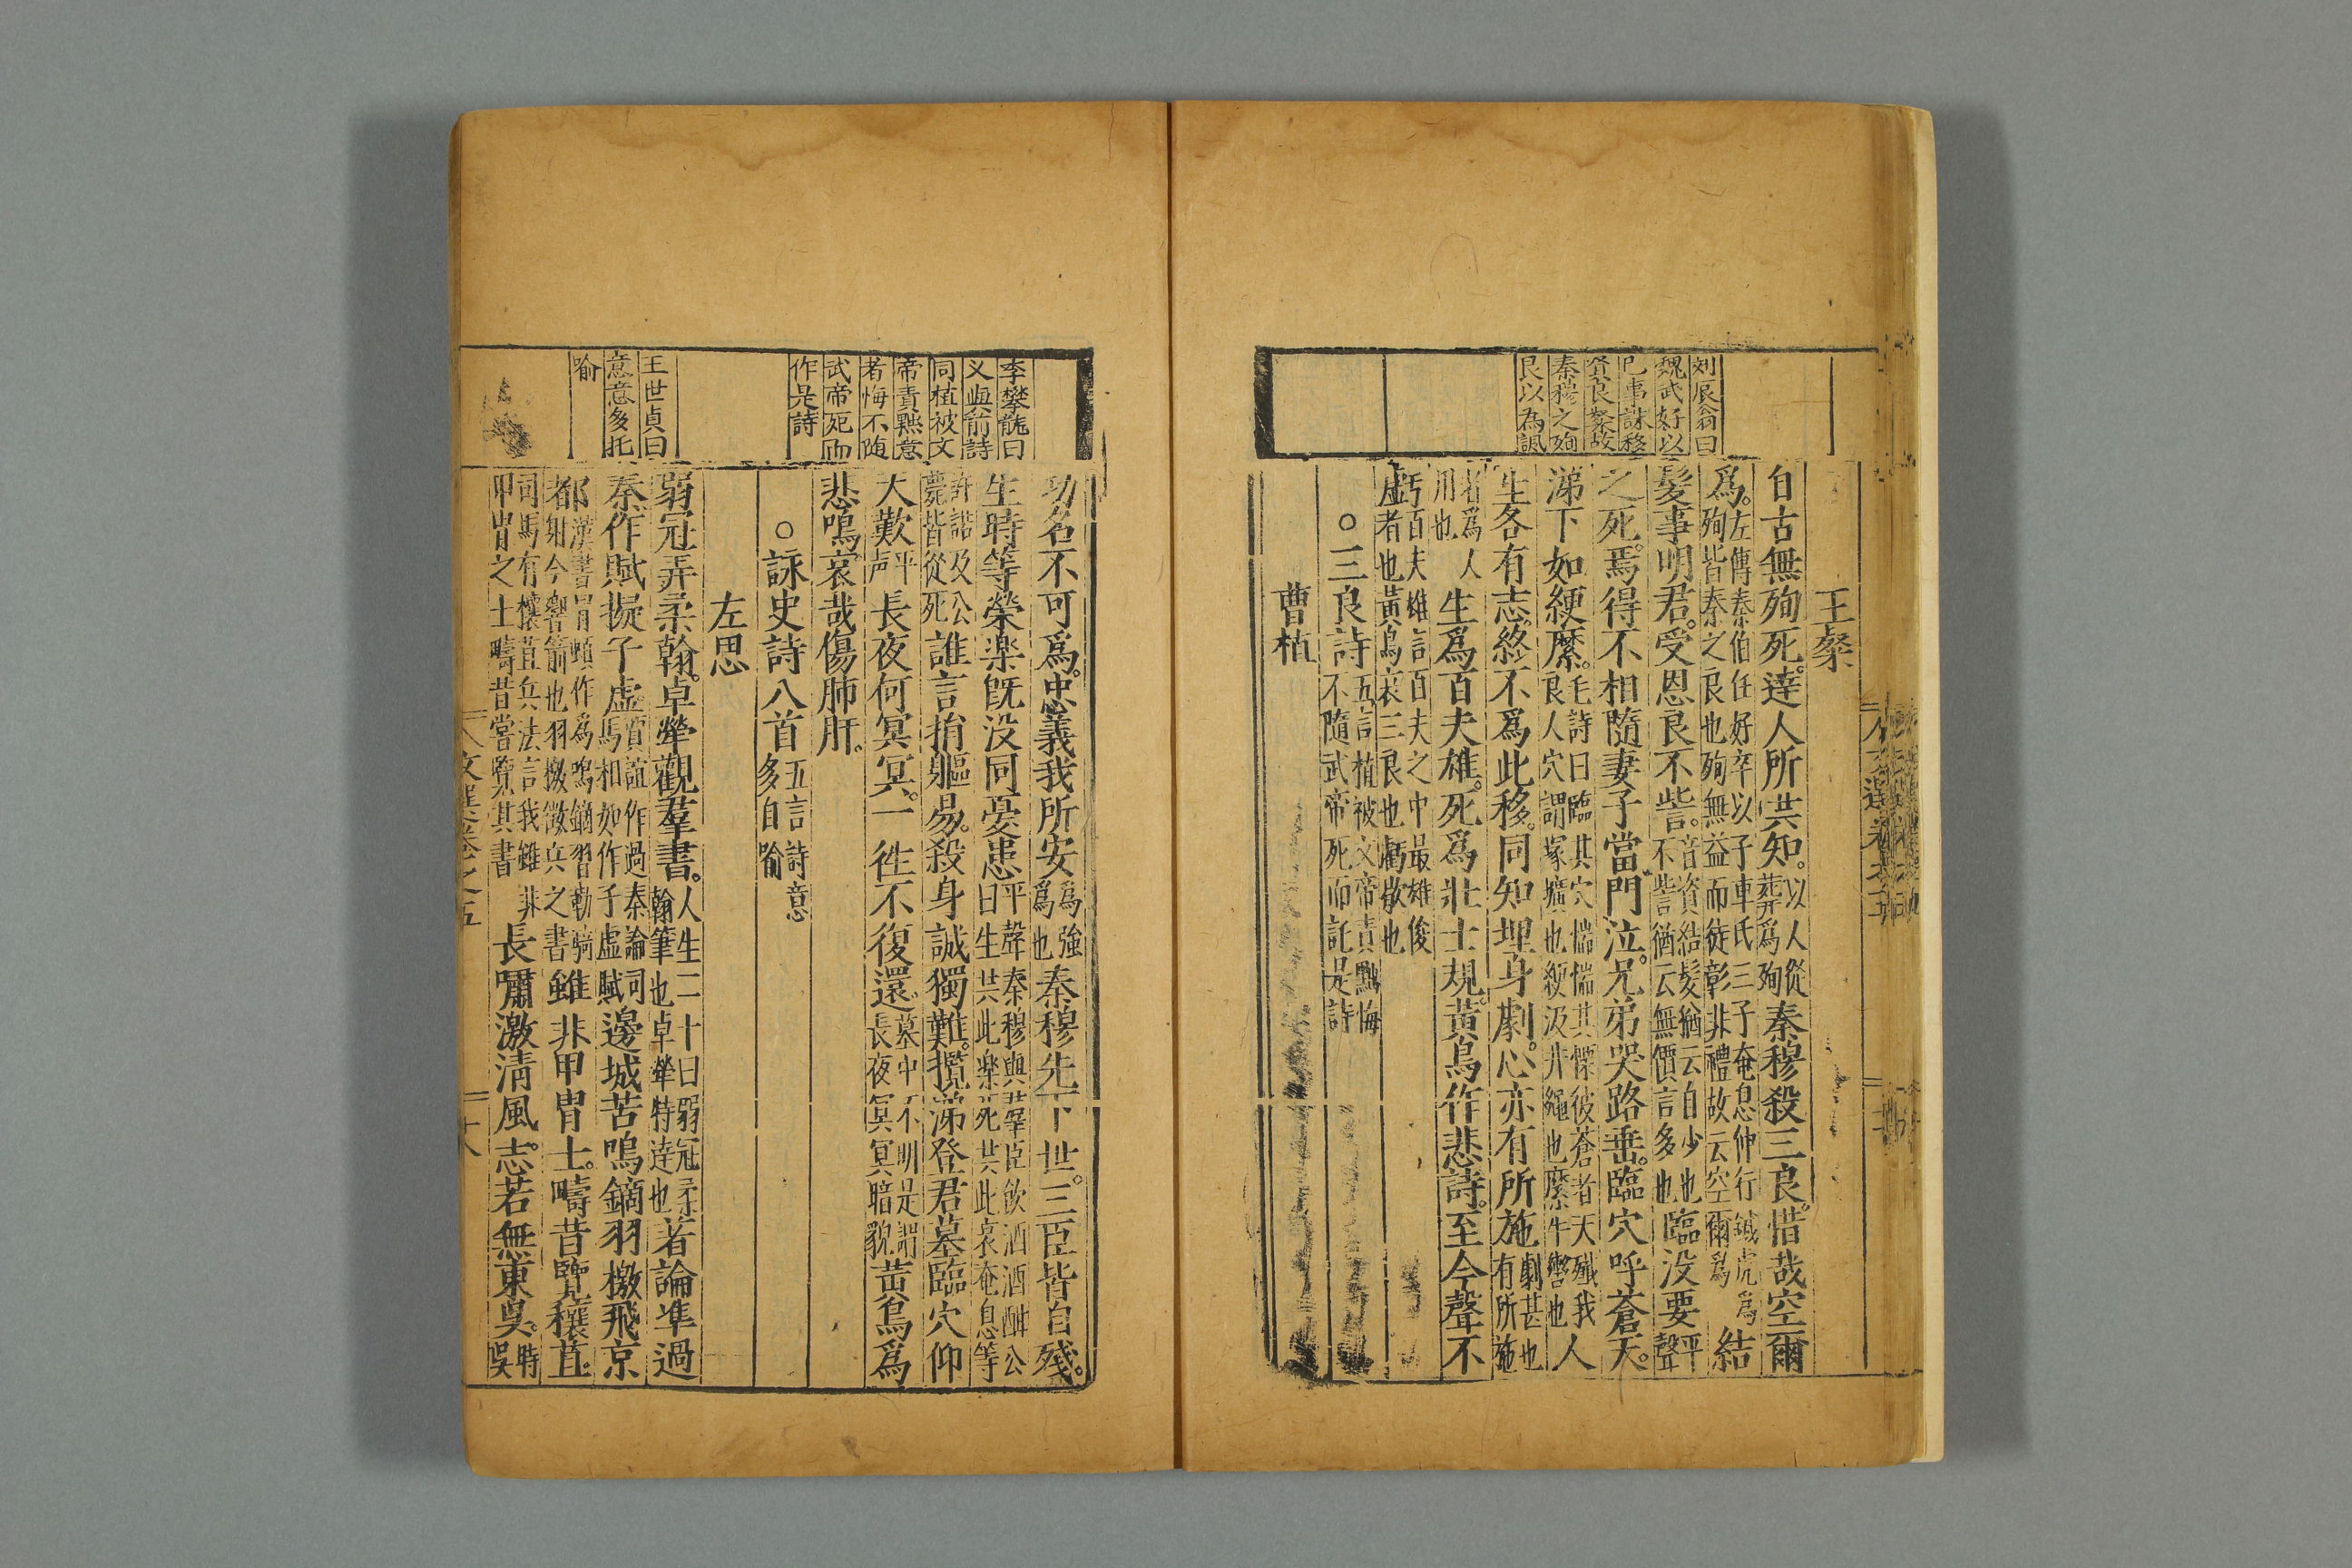 刘辰翁曰
魏武好以
已事誅移
賢良粲故
秦穆之殉
良以為諷
王粲
自古無殉死。達人所共知。以人從葬為殉秦穆殺三良。惜哉空爾
爲。左傳秦伯任好卒以子車氏三子奄息仲行鍼虎爲殉皆秦之良也殉無益而徒彰非禮故云空爾爲結
髮事明君。受恩良不訾。音資結髮猶云自少也不訾猶云無價言多也臨没要平聲
之死。焉得不相隨妻子當門泣。兄弟哭路垂。臨穴呼蒼天。
涕下如綆縻。毛詩曰臨其穴惴惴其慄彼蒼者天殲我良人穴謂塚壙也綆汲井繩也縻牛轡也人
生各有志。終不爲此移。同知埋身劇。心亦有所施劇甚也有所施
者爲人用也生爲百夫雄。死爲壯士規。黃鳥作悲詩。至今聲不
虧百夫雄言百夫之中最雄俊者也黃鳥哀三良也虧歇也
○三良詩五言植被文帝責黜悔不隨武帝死而託是詩
曹植
李攀龍曰
义與前詩
同植被文
帝責黜意
者悔不随
武帝死而
作是詩
王世貞曰
意意多托
喻
功名不可爲。忠義我所安爲強爲也秦穆先下世。三臣皆自殘。
生時等榮楽旣没同憂患平聲秦穆與羣臣飲酒酒酣公曰生共此楽死共此哀奄息等
許諾及公薨皆從死誰言捐軀易。殺身誠獨難。攬涕登君墓臨穴仰
天歎平声長夜何冥冥。一徃不復還墓中不明是謂長夜冥冥暗貌黃鳥爲
悲鳴哀哉傷肺肝。
○詠史詩八首五言詩意多自喻
左思
弱冠弄柔翰。卓犖觀羣書。人生二十曰弱冠柔翰筆也卓犖特達也著論準過
秦作賦擬子虛賈誼作過秦論司馬相如作子虛賦邊城苦鳴鏑羽檄飛京
都漢書冒頓作爲鳴鏑習勒騎射今響箭也羽檄徵兵之書雖非甲胄士。疇昔覽穰苴
司馬有穰苴兵法言我雖非甲胄之士疇昔嘗覽其書長嘯激淸風。志。若無東吳。時吳
文選卷之五
十八